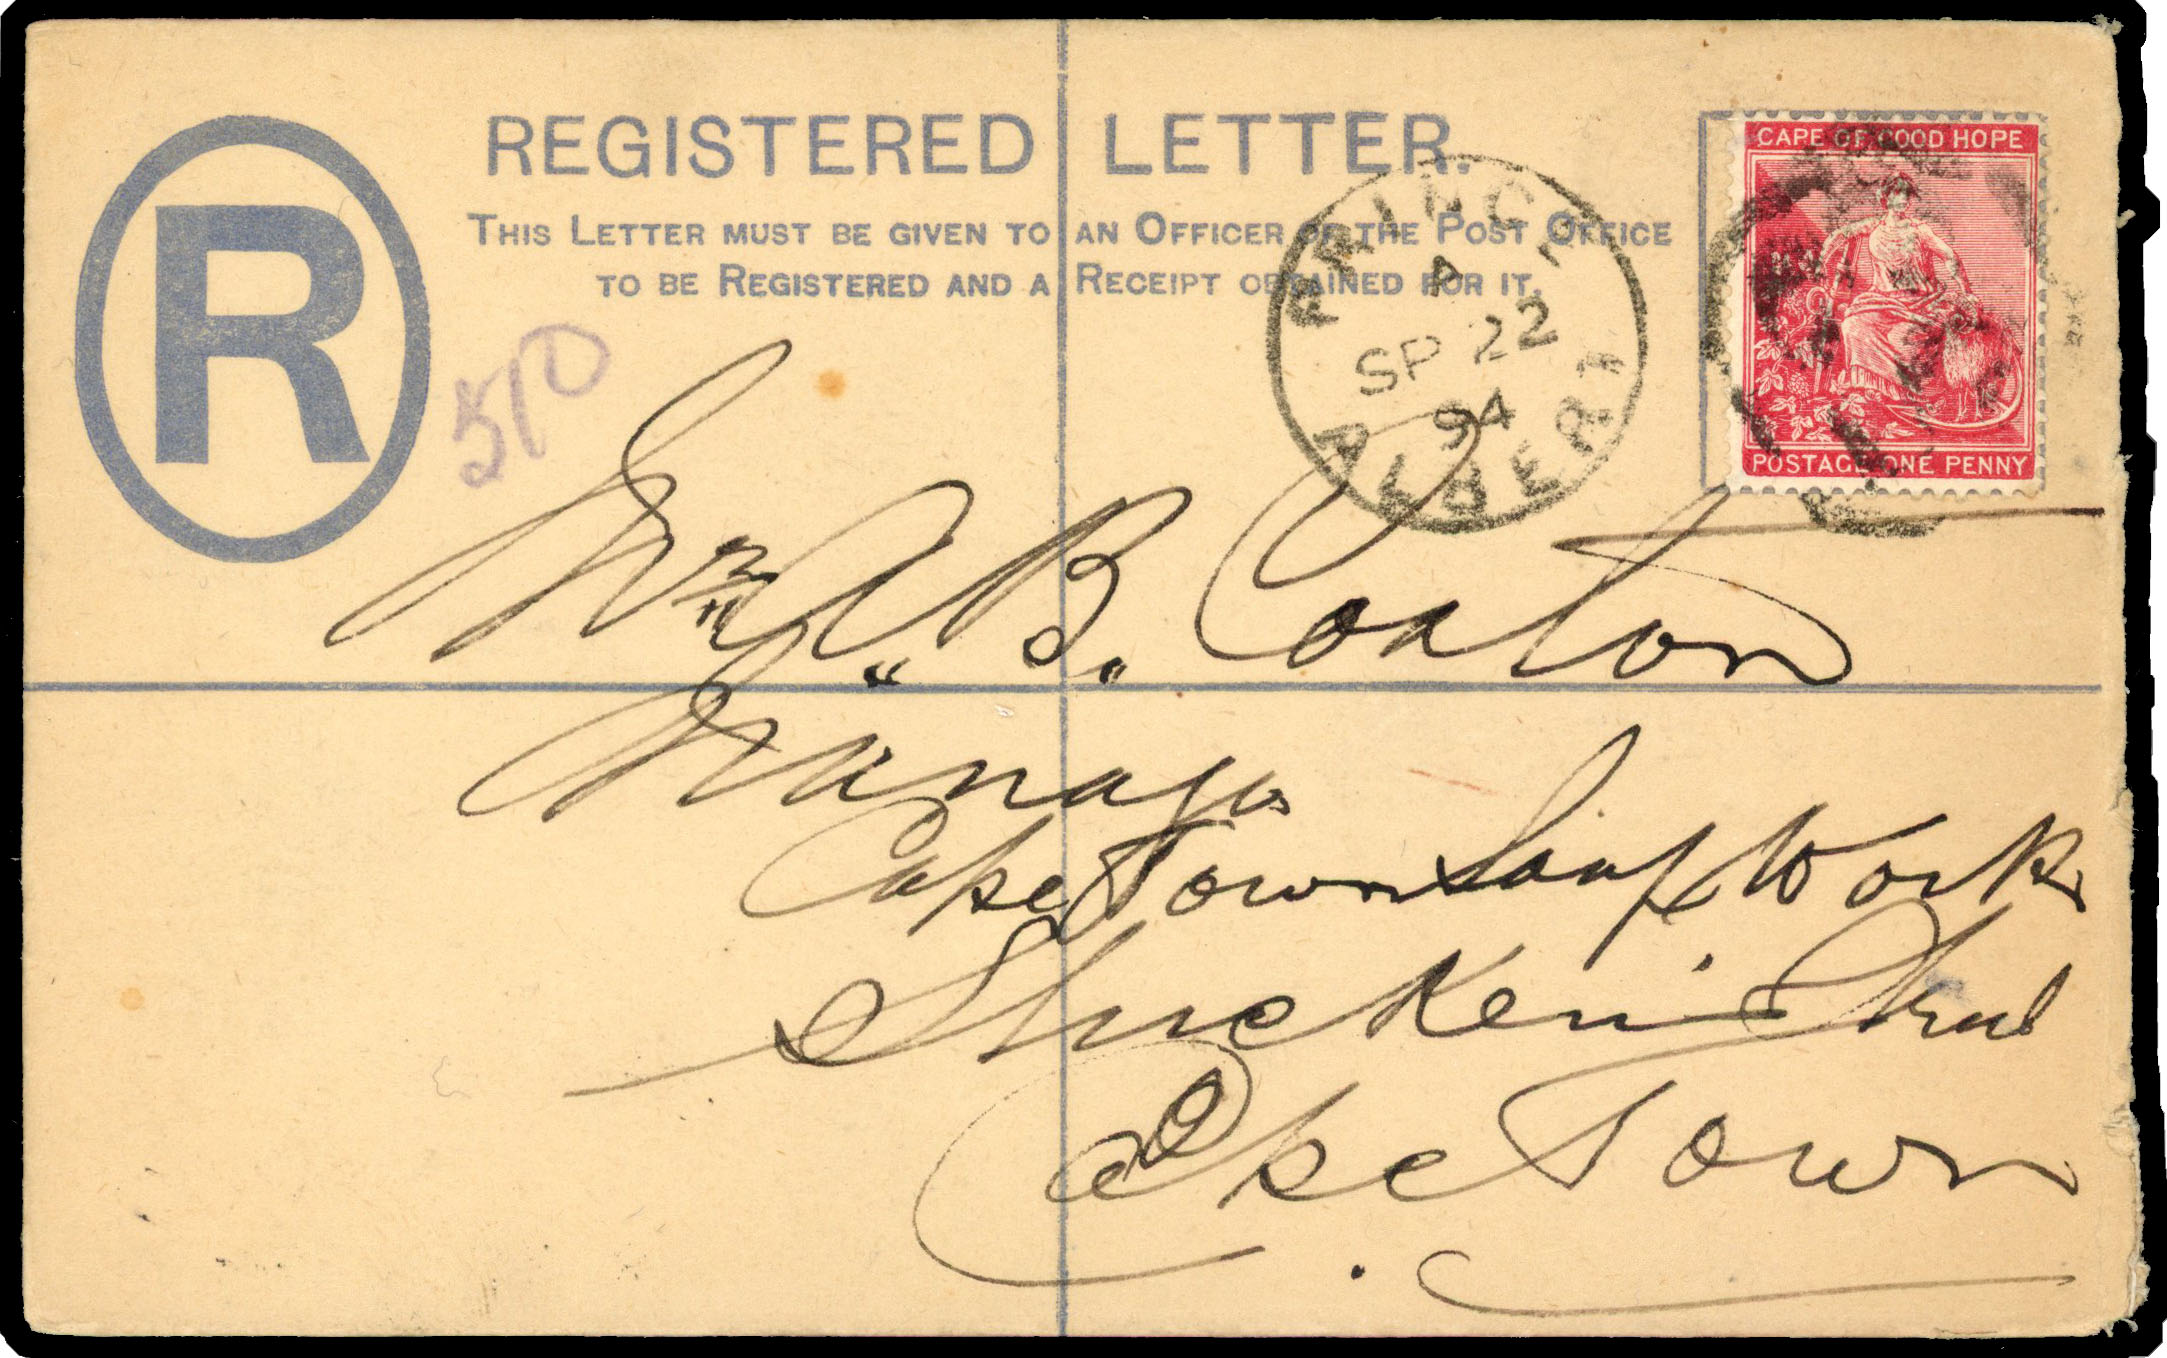 REGISTERED LETTER.
THIS LETTER MUST BE GIVEN TO AN OFFICER OF THE POST OFFICE
TO BE REGISTERED AND A RECEIPT OBTAINED FOR IT.
R
CAPE OF GOOD HOPE
POSTAGE ONE PENNY
PRINCE
A
SP 22
94
ALBERT
510
Mr A. B. Coaton
Manager
Cape Town Soap Works
Cape Town